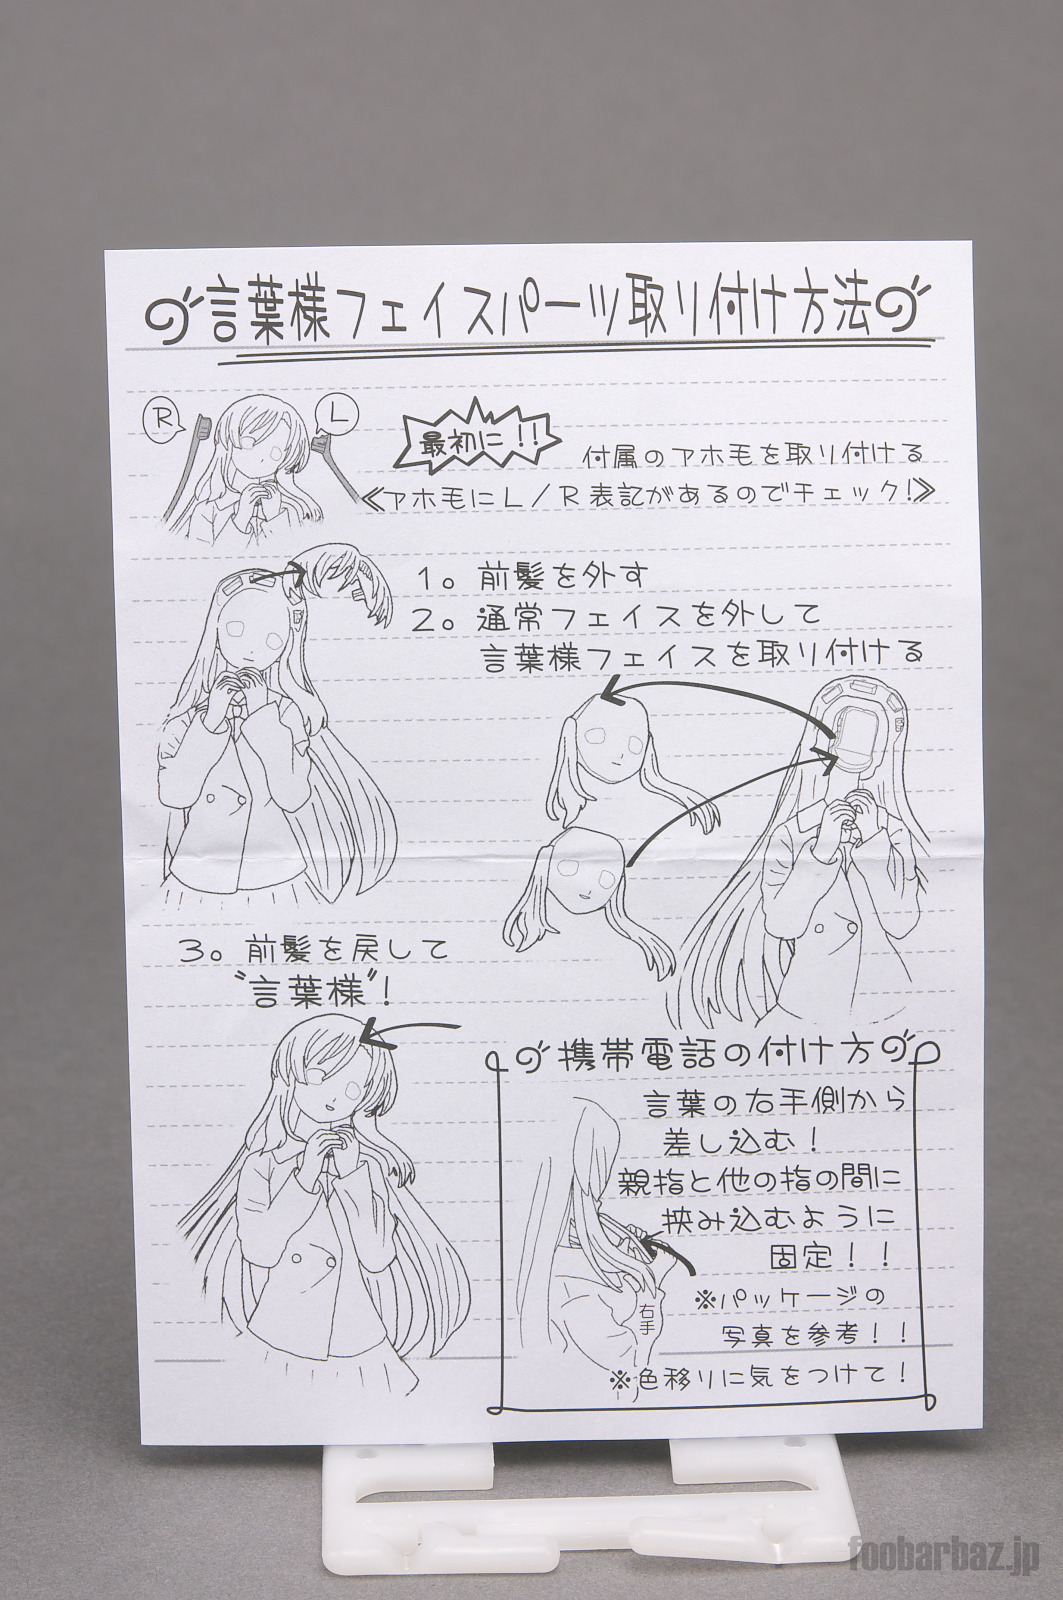 言葉様フェイスパーツ取り付け方法
R
L
最初に!!
付属のアホ毛を取り付ける
≪アホ毛にL/R表記があるのでチェック!≫
1。前髪を外す
2。通常フェイスを外して
言葉様フェイスを取り付ける
3。前髪を戻して
"言葉様"!
携帯電話の付け方
言葉の右手側から
差し込む!
親指と他の指の間に
挟み込むように
固定!!
右手
※パッケージの
写真を参考!!
※色移りに気をつけて!
foobarbaz.jp